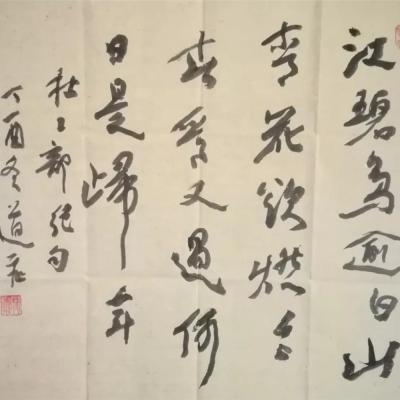 江碧鳥逾白山
青花欲燃今
春看又過何
日是歸年
杜工部絕句
丁酉冬道